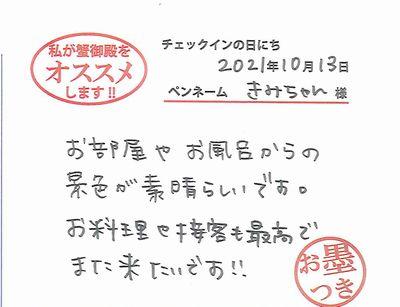 私が蟹御殿を
オススメ
します!!
チェックインの日にち
2021年10月13日
ペンネーム きみちゃん 様
お部屋や お風呂からの
景色が素晴らしいです。
お料理や接客も最高で
また来たいです!!
お墨
つき